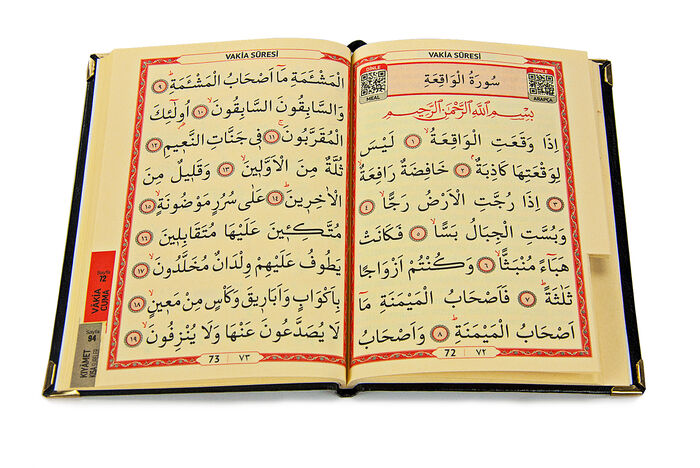 VAKİA SÛRESİ
DİNLE
MEAL
سُورَةُ الْوَاقِعَةِ
DİNLE
ARAPÇA
بِسْمِ اللّٰهِ الرَّحْمٰنِ الرَّحٖيمِ
اِذَا وَقَعَتِ الْوَاقِعَةُۙ ﴿١﴾ لَيْسَ
لِوَقْعَتِهَا كَاذِبَةٌۢ ﴿٢﴾ خَافِضَةٌ رَافِعَةٌۙ
﴿٣﴾ اِذَا رُجَّتِ الْاَرْضُ رَجًّاۙ ﴿٤﴾
وَبُسَّتِ الْجِبَالُ بَسًّاۙ ﴿٥﴾ فَكَانَتْ
هَبَٓاءً مُنْبَثًّاۙ ﴿٦﴾ وَكُنْتُمْ اَزْوَاجًا
ثَلٰثَةًؕ ﴿٧﴾ فَاَصْحَابُ الْمَيْمَنَةِ مَٓا
اَصْحَابُ الْمَيْمَنَةِؕ ﴿٨﴾ وَاَصْحَابُ
72 ٧٢
VAKİA SÛRESİ
الْمَشْـَٔمَةِ مَٓا اَصْحَابُ الْمَشْـَٔمَةِؕ ﴿٩﴾
وَالسَّابِقُونَ السَّابِقُونَۙ ﴿١٠﴾ اُو۬لٰٓئِكَ
الْمُقَرَّبُونَۚ ﴿١١﴾ فٖي جَنَّاتِ النَّعٖيمِ ﴿١٢﴾
ثُلَّةٌ مِنَ الْاَوَّلٖينَۙ ﴿١٣﴾ وَقَلٖيلٌ مِنَ
الْاٰخِرٖينَؕ ﴿١٤﴾ عَلٰى سُرُرٍ مَوْضُونَةٍۙ ﴿١٥﴾
مُتَّكِـٖٔينَ عَلَيْهَا مُتَقَابِلٖينَ ﴿١٦﴾
يَطُوفُ عَلَيْهِمْ وِلْدَانٌ مُخَلَّدُونَۙ ﴿١٧﴾
بِاَكْوَابٍ وَاَبَارٖيقَ وَكَأْسٍ مِنْ مَعٖينٍۙ ﴿١٨﴾
لَا يُصَدَّعُونَ عَنْهَا وَلَا يُنْزِفُونَۙ ﴿١٩﴾
73 ٧٣
Sayfa
72
VAKİA
CUMA
Sayfa
94
KIYAMET
KISA SURELER